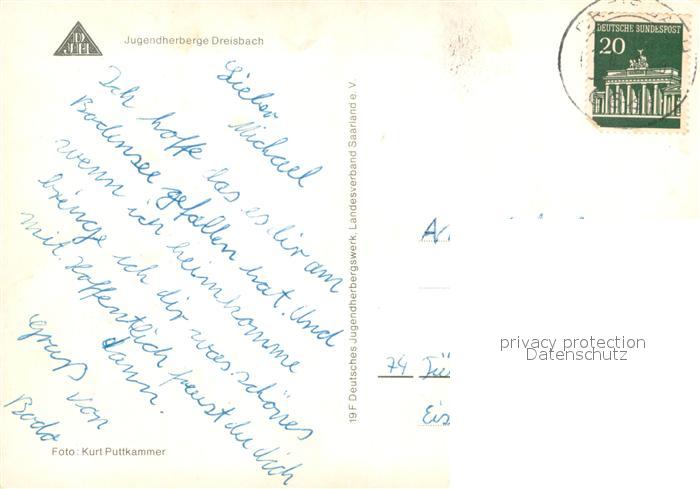 DJH
Jugendherberge Dreisbach
Lieber
Michael
Ich hoffe das es dir am
Bodensee gefallen hat. Und
wenn ich heimkomme
bringe ich dir was schönes
mit. Hoffentlich freust du dich
dann.
Gruß von
Bodo
Foto: Kurt Puttkammer
19 F Deutsches Jugendherbergswerk, Landesverband Saarland e. V.
DEUTSCHE BUNDESPOST
20
74
privacy protection
Datenschutz